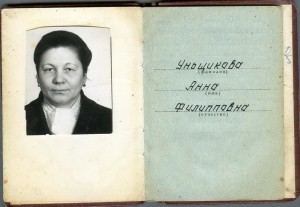 Уньщикова
(фамилия)
Анна
(имя)
Филипповна
(отчество)